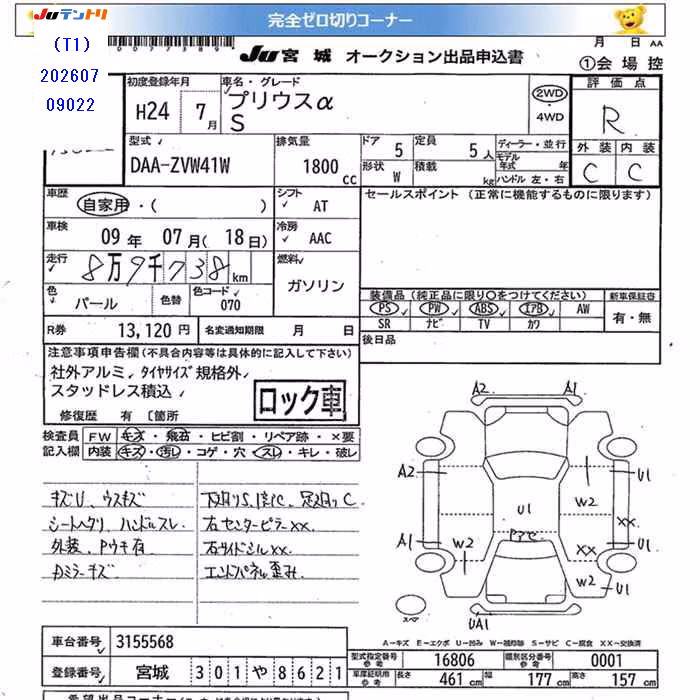 JUテントリ
完全ゼロ切りコーナー
(T1)
202607
09022
0073893
JU宮城 オークション出品申込書
月 日 AA
①会場控
初度登録年月
H24 7月
車名・グレード
プリウスα
S
2WD
・
4WD
評価点
R
外装 内装
C C
型式
DAA-ZVW41W
排気量
1800 cc
ドア 5
定員 5人
形状 W
積載 kg
ディーラー・並行
モデル年式 年
ハンドル 左・右
車歴
自家用・( )
シフト
AT
セールスポイント (正常に機能するものに限ります)
車検
09年 07月(18日)
冷房
AAC
走行
8万9千738km
燃料
ガソリン
色
パール
色替
色コード
070
装備品(純正品に限り○をつけてください)
PS PW ABS エアB AW
SR ナビ TV カワ
新車保証書
有・無
R券 13,120円
名変通知期限 月 日
後日品
注意事項申告欄(不具合内容等は具体的に記入して下さい)
社外アルミ、タイヤサイズ規格外
スタッドレス積込
ロック車
修復歴 有 〔箇所
検査員
記入欄
FW キズ・飛石・ヒビ割・リペア跡・×要
内装 キズ・汚れ・コゲ・穴・スレ・キレ・破レ
キズU、ウスキズ
シートヘタリ、ハンドルスレ
外装、Pウキ有
Aミラーキズ
下廻りS、錆C、足廻りC
右センターピラーXX.
右サイドシルXX.
エンドパネル歪み
A2 A1
A2 U1
W2
U1
XX
A1 W2 Pアセ XX
W2 U1
UA1
スペア
A－キズ E－エクボ U－凹み W－補修跡 S－サビ C－腐食 XX－交換済
車台番号 3155568
登録番号 宮城 301 や 8621
型式指定番号参考 16806
類別区分番号参考 0001
車庫証明用参考 長さ 461cm 幅 177cm 高さ 157cm
希望出品コーナー